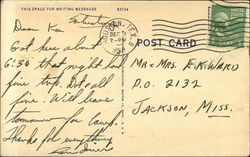 THIS SPACE FOR WRITING MESSAGES
POST CARD
Dear Ka
Got here about
6:30 that night had
fine trip. Not all
fine. Will leave
sometime for Camp.
Thanks for everything
TEX.
DEC
7-PM
MR & MRS. E K WARD
P.O. 2132
JACKSON, MISS.